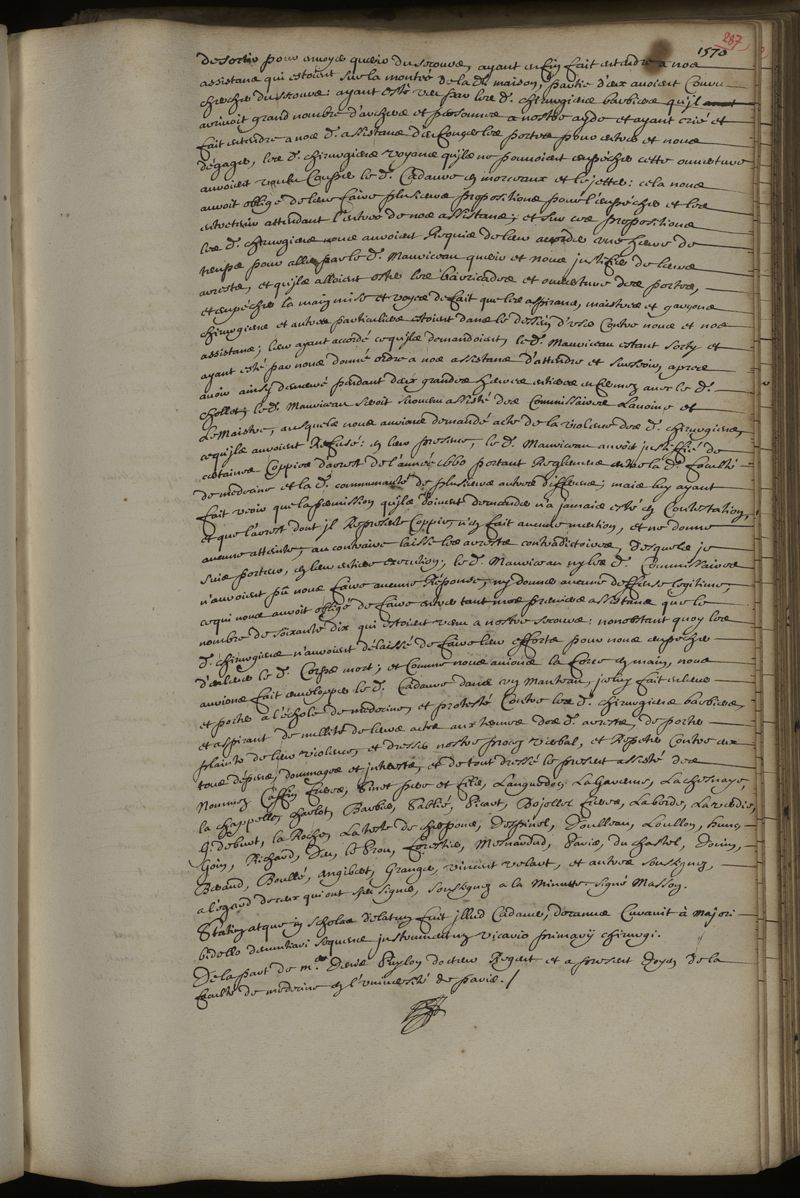 287
1573
de sortir pour envoyer querir du secours, ayant enfin fait entendre a nos
assistans qui estoient sur la montée de la de. maison, partie d'eux avoient couru
chercher du secours: ayant esté veu par les d. chirurgiens barbiers qu'jl
arrivoit grand nombre d'archers et personnes a nostre ayde et ayant crié et
fait entendre a nos d. assistans d'enfoncer les portes pour entrer et nous
dégager, les d. chirurgiens voyans qu'jls ne pouvoient empêcher cette ouverture
auroient voulu couper le d. Cadavre en morceaux et le jetter: cela nous
auroit obligé de leur faire plusieurs propositions pour l'empêcher et les
entretenir attendant l'entrée de nos assistans; et sur ces propositions
les d. chirurgiens nous auroient Requis de leur accorder une heure de
temps pour aller par le d. Mauriceau querir et nous justifier de leurs
arrests, et qu'jls alloient oster les barricades et ouverture des portes,
et empêcher la main mise et voyes de fait que les aspirans, maistres et garçons
chirurgiens et autres particuliers estoient dans le dessein d'user contre nous et nos
assistans; leur ayant accordé ce qu'jls demandoient, le d. Mauriceau estant sorty et
ayant esté par nous donné ordre a nos assistans d'attendre et surseoir, apres
avoir ainsy demeuré pendant deux grandes heures entieres enfermez avec le d.
Chollet, le d. Mauriceau seroit revenu assisté des Commissaires Lavoine et
Le Maistre, ausquels nous aurions demandé acte de la violence des d. chirurgiens,
ce qu'jls auroient Refusé: en leur presence, le d. Mauriceau auroit justiffié de
certaines Coppies d'arrest de l'année 1660 portant Reglement entre la d. faculté
de medecine et la d. communauté de plusieurs autres differens; mais luy ayant
fait veoir que la permission qu'jls doivent demander n'a jamais esté en Contestation,
et que l'arrest dont jl Represente Coppie, n'en fait aucune mention, et ne donne
aucune atteinte, au contraire laisse les arrests contradictoires, desquels je
suis porteur, en leur entiere execution; le d. Mauriceau ny les d. Commissaires
n'auroient pû nous faire aucune Réponse, ny donner aucune deffense legitime,
ce qui nous auroit obligé de faire entrer tant nos premiers assistans que le
nombre de soixante dix qui estoient venu a nostre secours: nonobstant quoy les
d. chirurgiens n'auroient délaissé de faire leur efforts pour nous empêcher
d'enlever le d. Corps mort; et comme nous avions la force en main, nous
aurions fait enveloper le d. Cadavre dans un Manteau, jceluy fait enlever
et porter à l'école de medecine, et protesté Contre les d. chirurgiens barbiers,
et aspirant de nullité de leurs actes aux termes des d. arrests, de porter
plainte de leur violence, et dresser nostre procez verbal, et Repeter Contre eux
tous dépens, dommages et interests, et de tout dressé le present assisté des
Nommez Caffin freres, Binet pere et fils, Languedoc, La Garenne, Lachesnaye,
la chappelle, charlot, Barbier, Sablié, Picart, Bojollet freres, Laborde,
la Roche, La teste de Despinel, Loullon,
Goin, Richard, le Brou, Forestier, du chastel,
Beraud, Boullé, Angibert, Granger, vincent volant, et autres soussignez,
a l'égard de ceux qui ont sçeu signer, soussignez a la Minutte signé Masson.
Statim atque in scholas delatum fuit illud Cadaver, decanus Curavit à majori
bidello denuntiari sequens jnstrumentum vicario primarij chirurgi.
De la part de M.e Denis Puylon docteur Regent et a present doyen de la
faculté de medecine en l'université de paris./